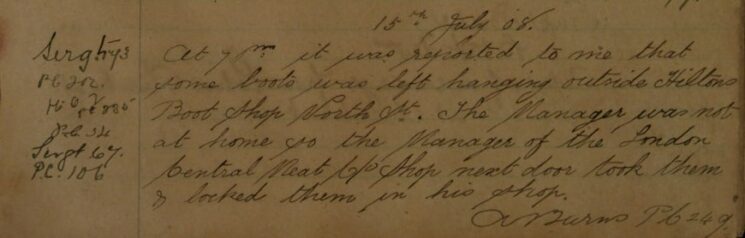 15th July 08.
Sergt 93
P.C 202.
PC 885
P.C. 14
Sergt 67.
P.C. 106
At 7 pm it was reported to me that
some boots was left hanging outside Hiltons
Boot Shop North St. The Manager was not
at home so the Manager of the London
Central Meat Co Shop next door took them
& locked them in his shop.
A Burns P C 249.